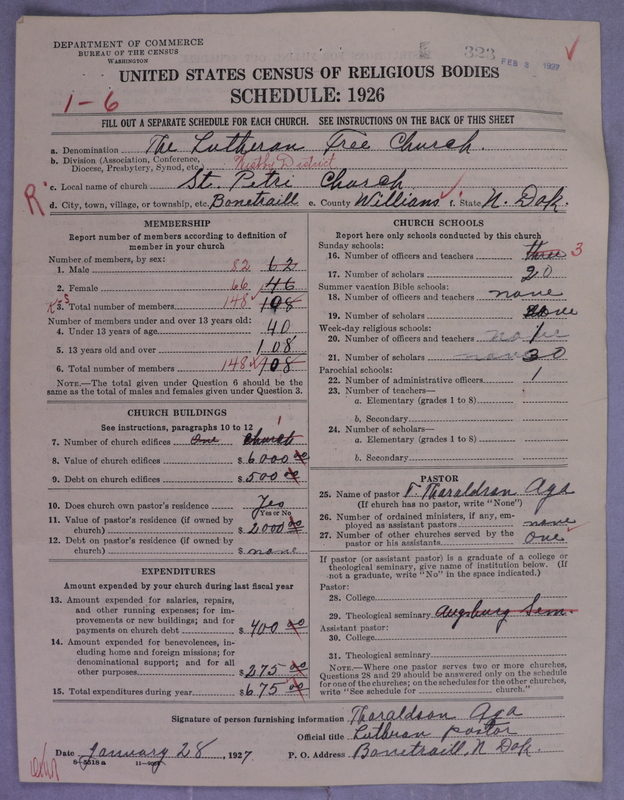 DEPARTMENT OF COMMERCE
BUREAU OF THE CENSUS
WASHINGTON
323 FEB 3 1927
UNITED STATES CENSUS OF RELIGIOUS BODIES
1-6
SCHEDULE: 1926
FILL OUT A SEPARATE SCHEDULE FOR EACH CHURCH. SEE INSTRUCTIONS ON THE BACK OF THIS SHEET
a. Denomination The Lutheran Free Church.
b. Division (Association, Conference, Diocese, Presbytery, Synod, etc.) District
R
c. Local name of church St. Petri Church
d. City, town, village, or township, etc. Bonetraill e. County Williams f. State N. Dak.
MEMBERSHIP
Report number of members according to definition of
member in your church
Number of members, by sex:
1. Male 82 62
2. Female 66 46
3. Total number of members 148 108
Number of members under and over 13 years old:
4. Under 13 years of age 40
5. 13 years old and over 108
6. Total number of members 148 108
NOTE.—The total given under Question 6 should be the
same as the total of males and females given under Question 3.
CHURCH BUILDINGS
See instructions, paragraphs 10 to 12
7. Number of church edifices One church 1
8. Value of church edifices $ 6000 00
9. Debt on church edifices $ 500 00
10. Does church own pastor's residence Yes
(Yes or No)
11. Value of pastor's residence (if owned by
church) $ 2000 00
12. Debt on pastor's residence (if owned by
church) $ none
EXPENDITURES
Amount expended by your church during last fiscal year
13. Amount expended for salaries, repairs,
and other running expenses; for im-
provements or new buildings; and for
payments on church debt $ 400 00
14. Amount expended for benevolences, in-
cluding home and foreign missions; for
denominational support; and for all
other purposes $ 275 00
15. Total expenditures during year $ 675 00
CHURCH SCHOOLS
Report here only schools conducted by this church
Sunday schools:
16. Number of officers and teachers three 3
17. Number of scholars 20
Summer vacation Bible schools:
18. Number of officers and teachers none
19. Number of scholars none
Week-day religious schools:
20. Number of officers and teachers none 1
21. Number of scholars none 30
Parochial schools:
22. Number of administrative officers 1
23. Number of teachers—
a. Elementary (grades 1 to 8)
b. Secondary
24. Number of scholars—
a. Elementary (grades 1 to 8)
b. Secondary
PASTOR
25. Name of pastor T. Tharaldson Aga
(If church has no pastor, write "None")
26. Number of ordained ministers, if any, em-
ployed as assistant pastors none
27. Number of other churches served by the
pastor or his assistants one
If pastor (or assistant pastor) is a graduate of a college or
theological seminary, give name of institution below. (If
not a graduate, write "No" in the space indicated.)
Pastor:
28. College
29. Theological seminary Augsburg Sem.
Assistant pastor:
30. College
31. Theological seminary
NOTE.—Where one pastor serves two or more churches,
Questions 28 and 29 should be answered only on the schedule
for one of the churches; on the schedules for the other churches,
write "See schedule for church."
Signature of person furnishing information Tharaldson Aga
Official title Lutheran pastor
Date January 28, 1927 P. O. Address Bonetraill, N Dak.